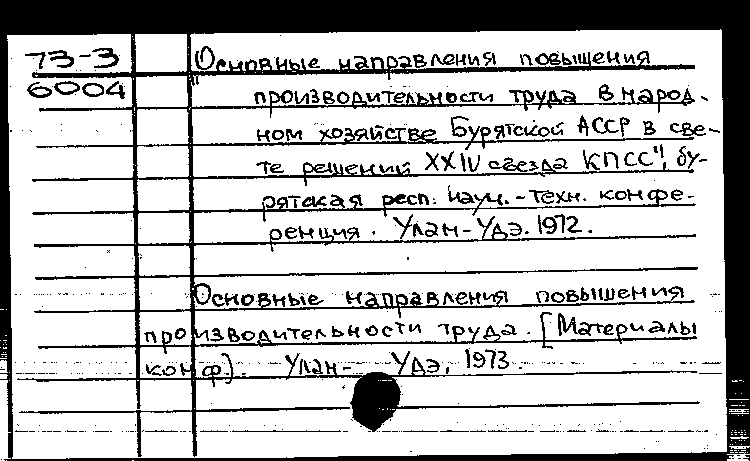 73-3
6004
"Основные направления повышения
производительности труда в народ-
ном хозяйстве Бурятской АССР в све-
те решений XXIV съезда КПСС", бу-
рятская респ. науч.-техн. конфе-
ренция. Улан-Удэ. 1972.
Основные направления повышения
производительности труда. [Материалы
конф]. Улан-Удэ, 1973.